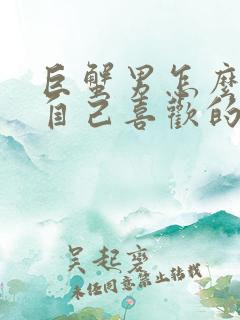 巨蟹男怎麼
自己喜歡的
吴起磨
未任同意禁止转载